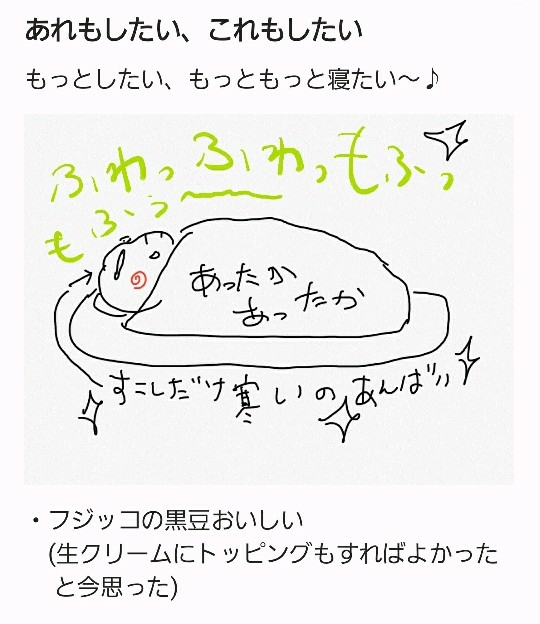 あれもしたい、これもしたい
もっとしたい、もっともっと寝たい〜♪
ふわっふわっもふっ
もふぅ〜
あったか
あったか
すこしだけ寒いのあんばい
・フジッコの黒豆おいしい
(生クリームにトッピングもすればよかった
と今思った)